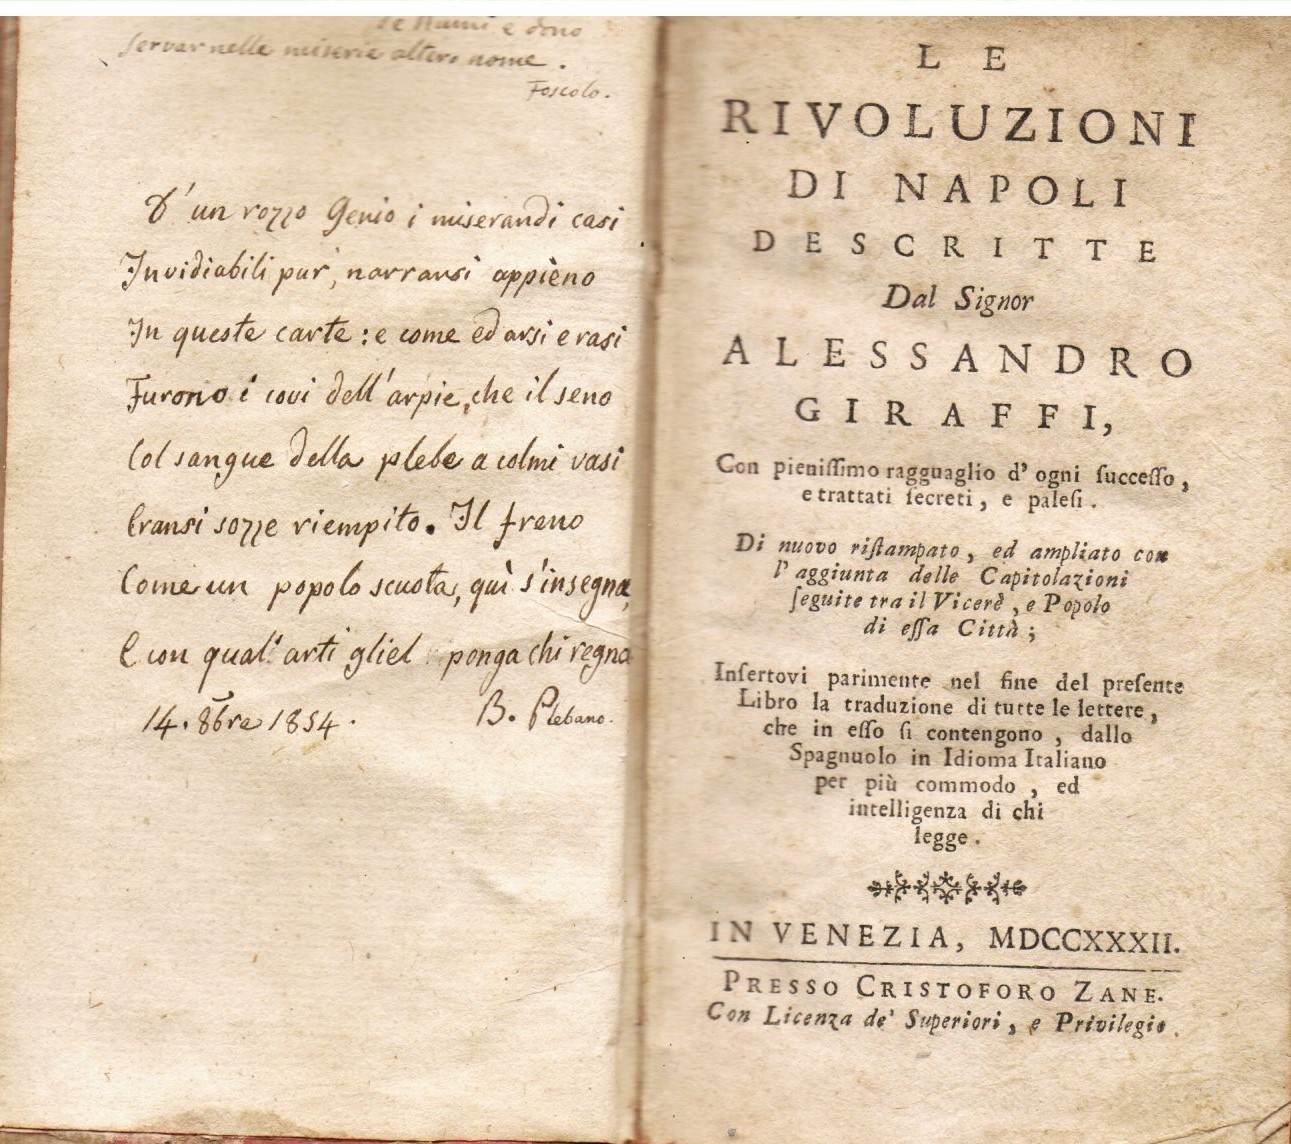 de' Numi è dono
servar nelle miserie altero nome.
Foscolo.
D'un rozzo Genio i miserandi casi
Invidiabili pur, narransi appièno
In queste carte: e come ed arsi e rasi
Furono i covi dell'arpie, che il seno
Col sangue della plebe a colmi vasi
Eransi sozze riempito. Il freno
Come un popolo scuota, quì s'insegna,
E con qual' arti gliel ponga chi regna
14. 8bre 1854. B. Plebano.
LE
RIVOLUZIONI
DI NAPOLI
DESCRITTE
Dal Signor
ALESSANDRO
GIRAFFI,
Con pieniſſimo ragguaglio d' ogni ſucceſſo,
e trattati ſecreti, e paleſi.
Di nuovo riſtampato, ed ampliato con
l' aggiunta delle Capitolazioni
ſeguite tra il Vicerè, e Popolo
di eſſa Città;
Inſertovi parimente nel fine del preſente
Libro la traduzione di tutte le lettere,
che in eſſo ſi contengono, dallo
Spagnuolo in Idioma Italiano
per più commodo, ed
intelligenza di chi
legge.
IN VENEZIA, MDCCXXXII.
PRESSO CRISTOFORO ZANE.
Con Licenza de' Superiori, e Privilegio.